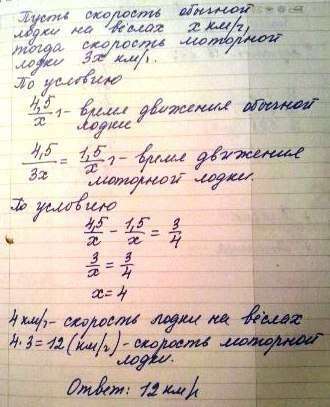 Пусть скорость обычной
лодки на вёслах x км/г,
тогда скорость моторной
лодки 3x км/г.
По условию
4,5/x г - время движения обычной
лодки
4,5/3x = 1,5/x г - время движения
моторной лодки.
По условию
4,5/x - 1,5/x = 3/4
3/x = 3/4
x = 4
4 км/г - скорость лодки на вёслах
4·3=12 (км/г) - скорость моторной
лодки.
Ответ: 12 км/г